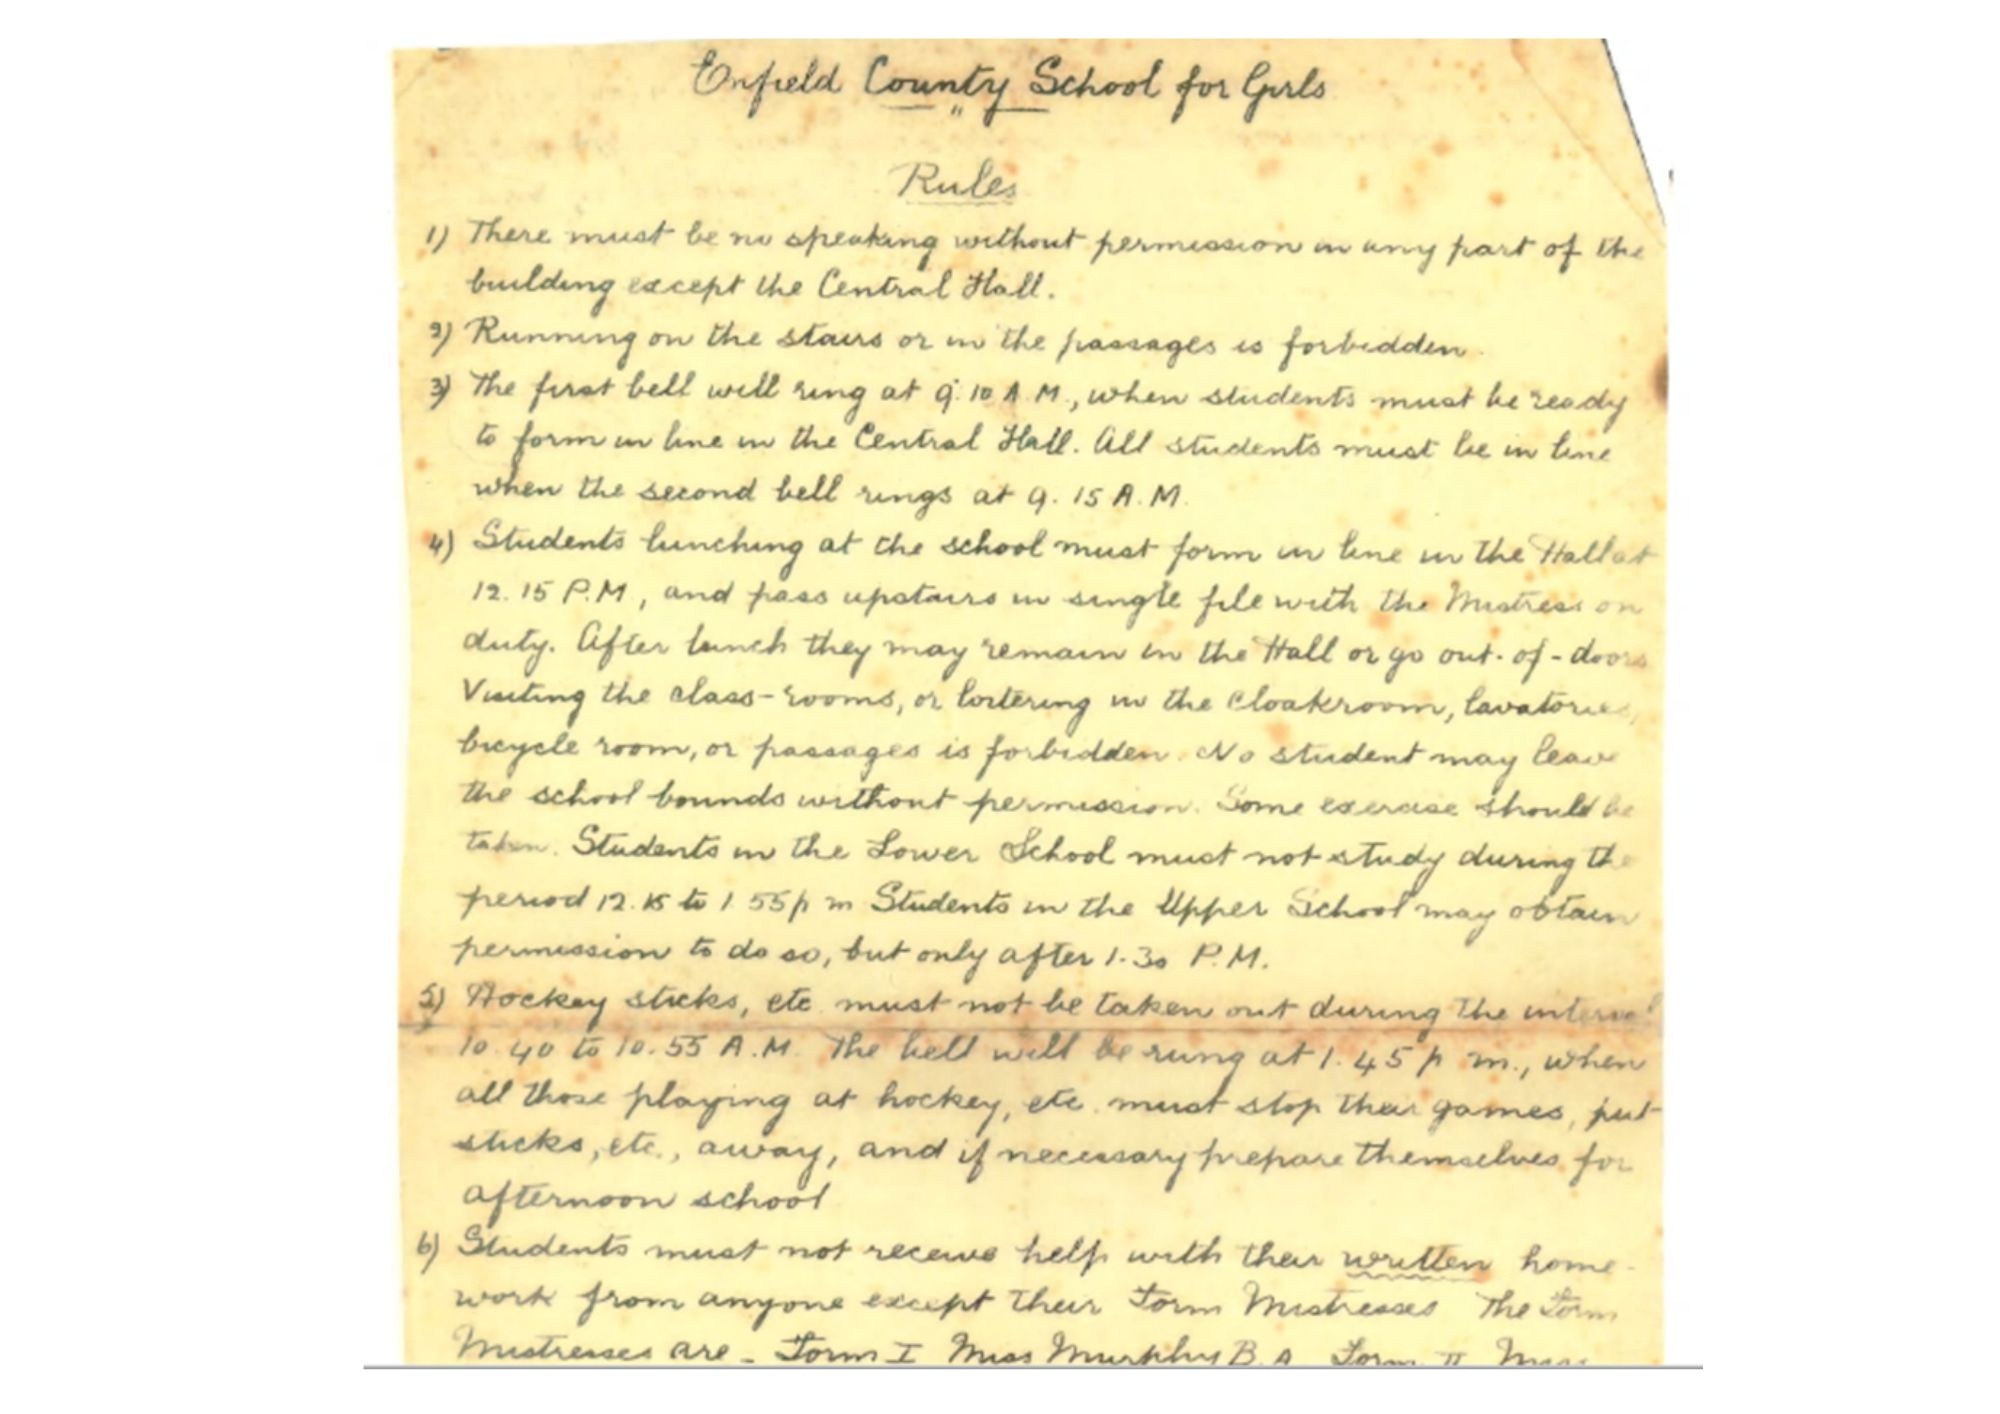 Enfield County School for Girls
"
Rules
1) There must be no speaking without permission in any part of the
building except the Central Hall.
2) Running on the stairs or in the passages is forbidden.
3) The first bell will ring at 9.10 A.M., when students must be ready
to form in line in the Central Hall. All students must be in line
when the second bell rings at 9.15 A.M.
4) Students lunching at the school must form in line in the Hall at
12.15 P.M., and pass upstairs in single file with the Mistress on
duty. After lunch they may remain in the Hall or go out-of-doors
Visiting the class-rooms, or loitering in the cloakroom, lavatories,
bicycle room, or passages is forbidden. No student may leave
the school bounds without permission. Some exercise should be
taken. Students in the Lower School must not study during the
period 12.15 to 1 55 p m Students in the Upper School may obtain
permission to do so, but only after 1.30 P.M.
5) Hockey sticks, etc must not be taken out during the interval
10.40 to 10.55 A.M. The bell will be rung at 1.45 p m., when
all those playing at hockey, etc. must stop their games, put
sticks, etc., away, and if necessary prepare themselves for
afternoon school
6) Students must not receive help with their written home-
work from anyone except their Form Mistresses The Form
Mistresses are - Form I Miss Murphy B.A Form II Miss